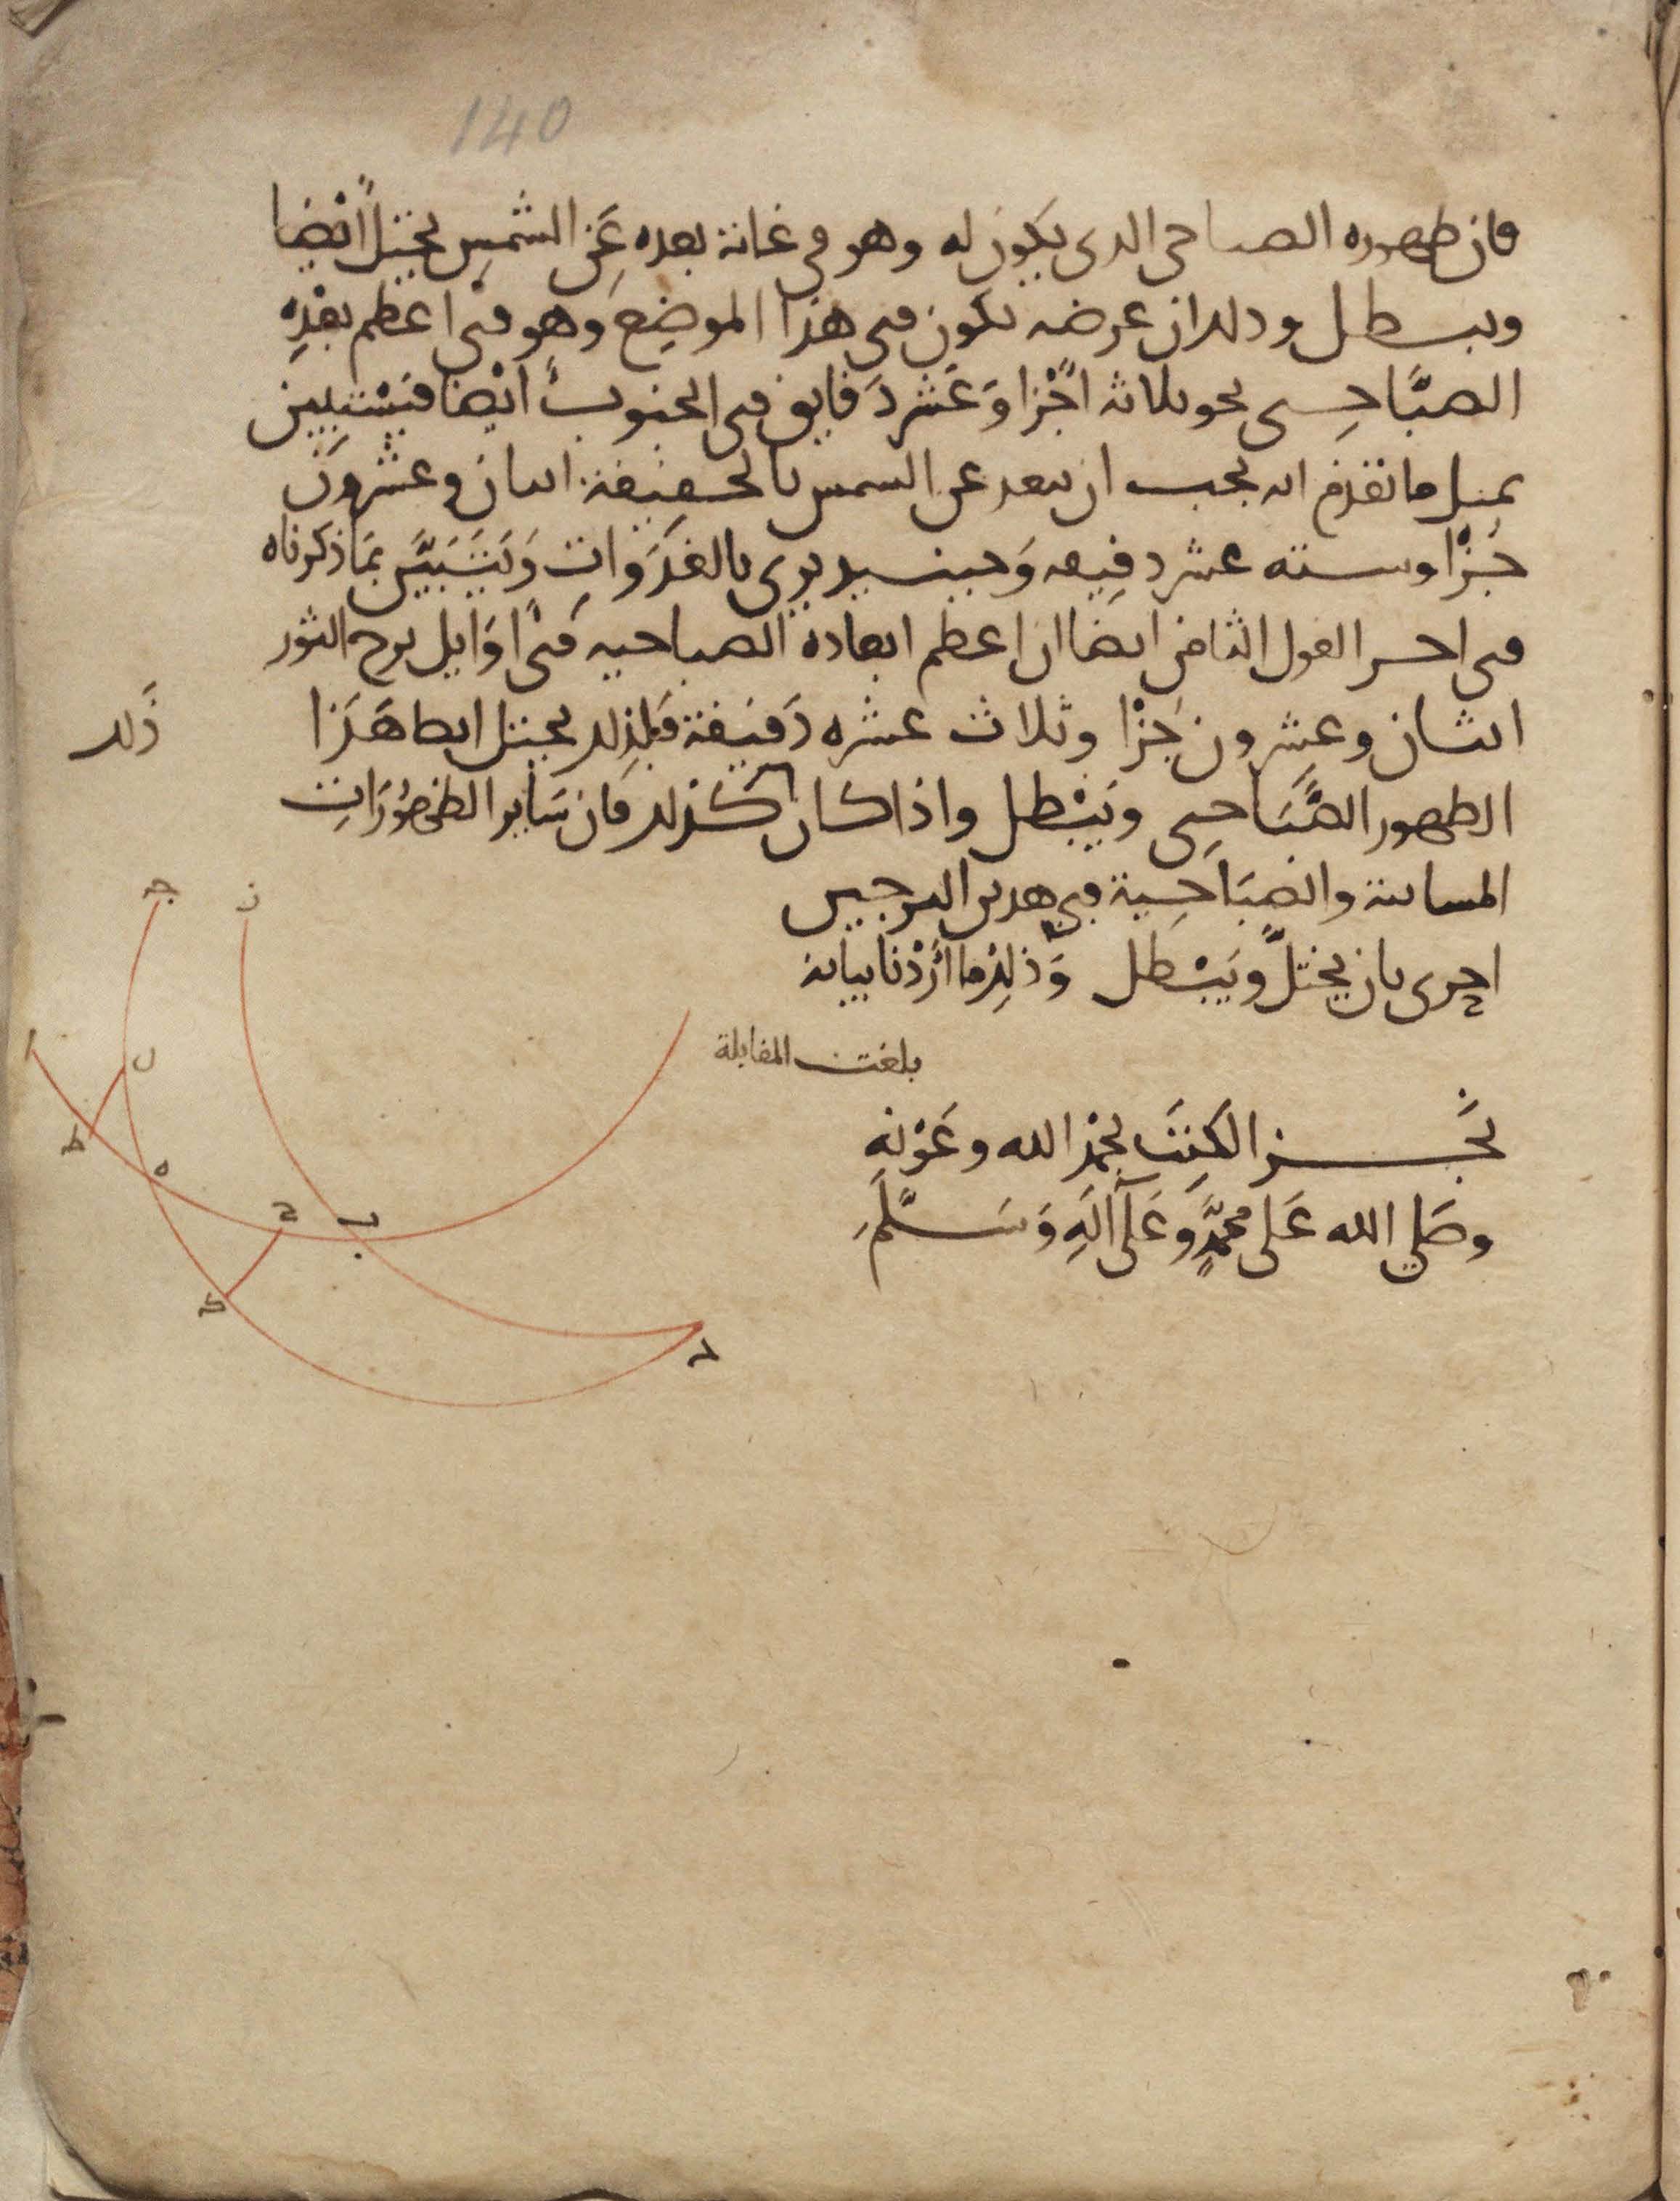 140
فان ظهوره الصباحي الذي يكون له وهو في غاية بعده عن الشمس يختل ايضا
ويبطل وذلك ان عرضه يكون في هذا الموضع وهو في اعظم بعده
الصباحي نحو ثلاثة اجزا وعشر دقايق في الجنوب ايضا فيستبين
بمثل ما تقدم انه يجب ان يبعد عن الشمس بالحقيقة اثنان وعشرون
جزا وستة عشر دقيقة وحينئذ يرى بالغدوات ويتبين بما ذكرناه
في اخر القول الثامن ايضا ان اعظم ابعاده الصباحية في اوايل برج الثور
اثنان وعشرون جزا وثلاث عشره دقيقة فلذلك يختل ايضا هذا
ذلك
الظهور الصباحي ويبطل واذا كان كذلك فان ساير الظهورات
المسائية والصباحية في هذين البرجين
احرى بان يختل ويبطل وذلك ما اردنا بيانه
بلغت المقابلة
نجز الكتب بحمد الله وعونه
وصلى الله على محمد وعلى آله وسلم
ج
ز
ا
ل
ط
ه
ح
ب
ك
د